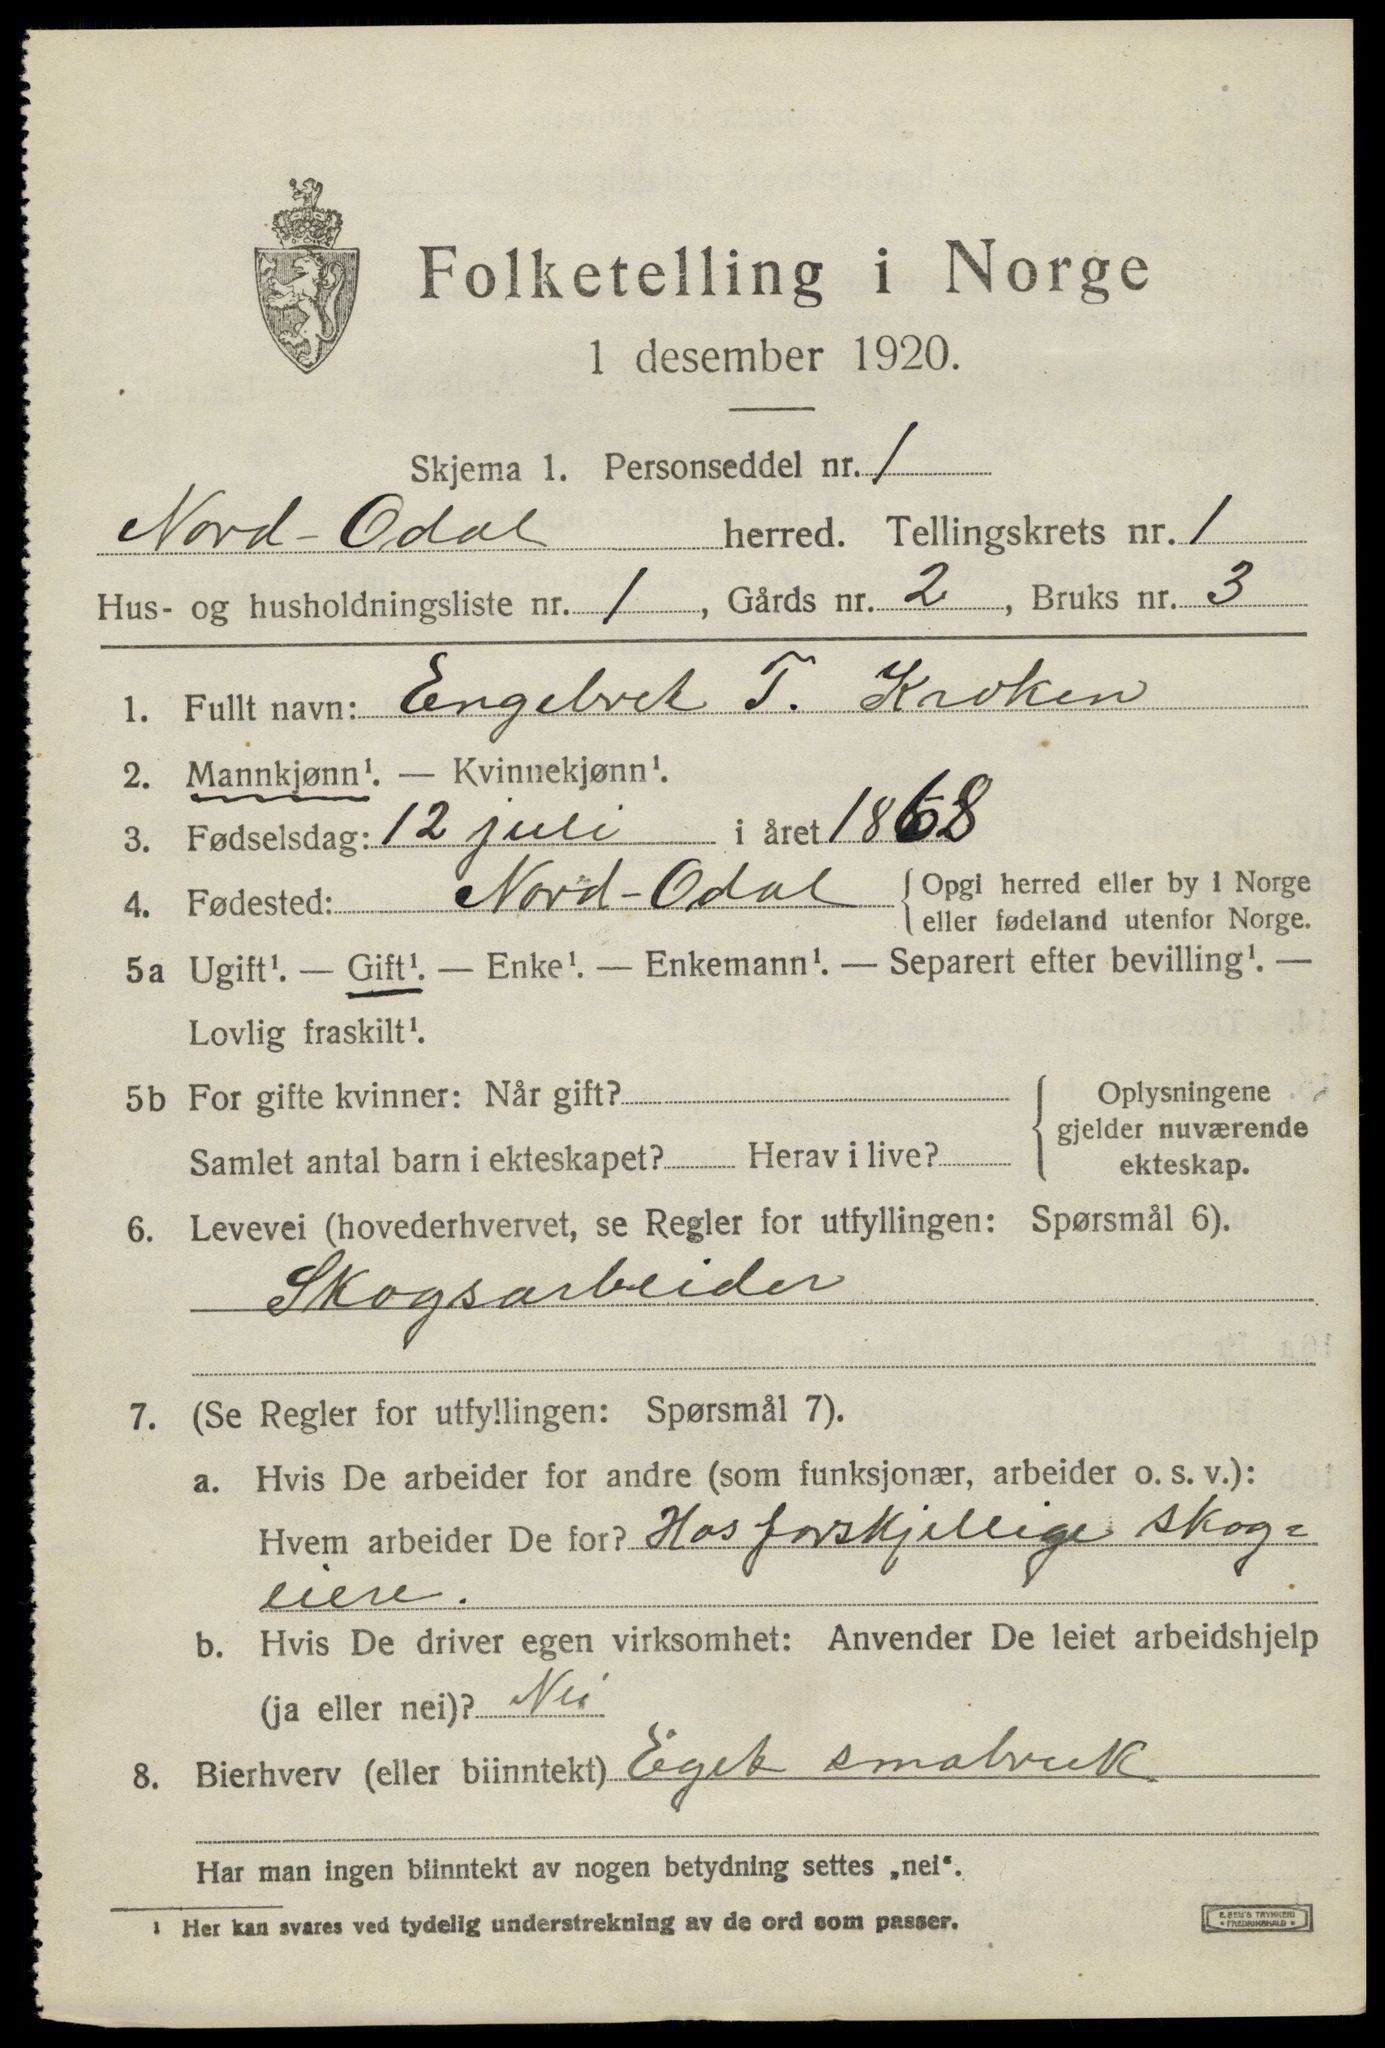 Folketelling i Norge
1 desember 1920.
Skjema 1. Personseddel nr. 1
Nord-Odal herred. Tellingskrets nr. 1
Hus- og husholdningsliste nr. 1, Gårds nr. 2, Bruks nr. 3
1. Fullt navn: Engebret T. Kroken
2. Mannkjønn¹. — Kvinnekjønn¹.
3. Fødselsdag: 12 juli i året 1868
4. Fødested: Nord-Odal { Opgi herred eller by i Norge
eller fødeland utenfor Norge.
5a Ugift¹. — Gift¹. — Enke¹. — Enkemann¹. — Separert efter bevilling¹. —
Lovlig fraskilt¹.
5b For gifte kvinner: Når gift? { Oplysningene
gjelder nuværende
Samlet antal barn i ekteskapet? Herav i live? ekteskap.
6. Levevei (hovederhvervet, se Regler for utfyllingen: Spørsmål 6).
Skogsarbeider
7. (Se Regler for utfyllingen: Spørsmål 7).
a. Hvis De arbeider for andre (som funksjonær, arbeider o. s. v.):
Hvem arbeider De for? Hos forskjellige skog=
eiere.
b. Hvis De driver egen virksomhet: Anvender De leiet arbeidshjelp
(ja eller nei)? Nei
8. Bierhverv (eller biinntekt) Eget smabruk
Har man ingen biinntekt av nogen betydning settes „nei“.
¹ Her kan svares ved tydelig understrekning av de ord som passer.
E. SEM'S TRYKKERI
FREDRIKSHALD